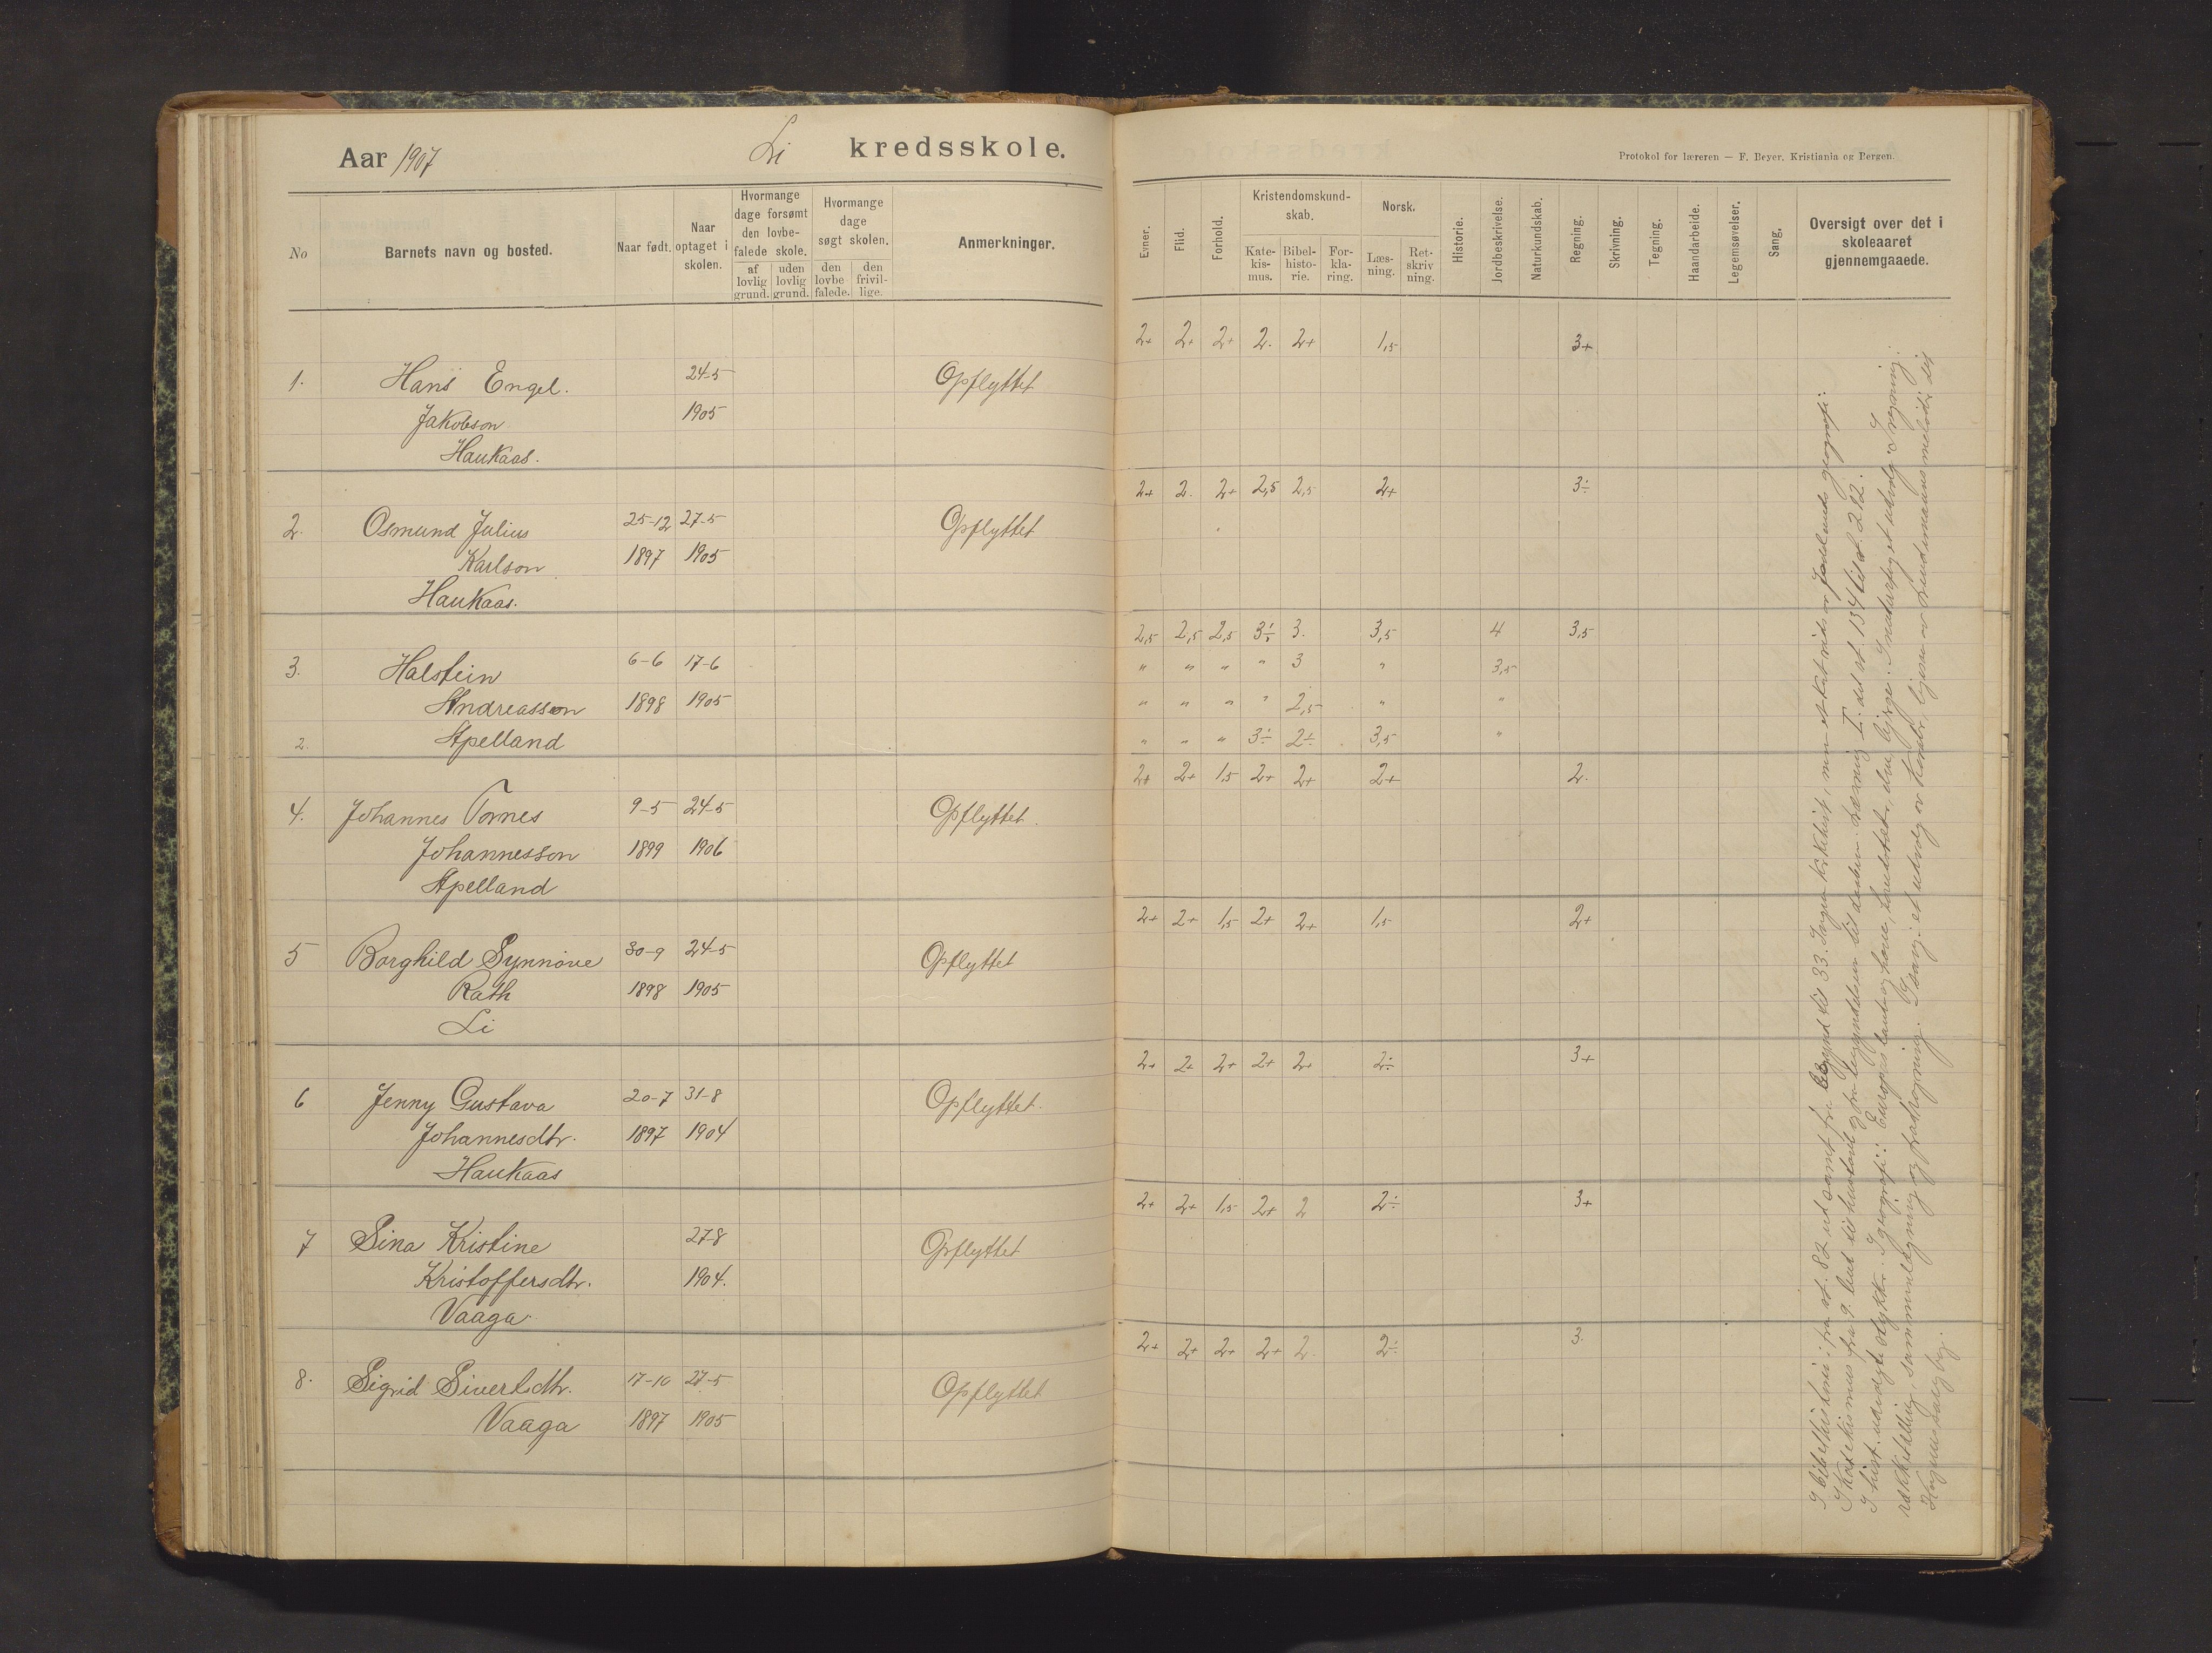 Aar 1907 Li kredsskole.
No Barnets navn og bosted. Naar født. Naar optaget i skolen. Hvormange dage forsømt den lovbefalede skole. af lovlig grund. uden lovlig grund. Hvormange dage søgt skolen. den lovbefalede. den frivillige. Anmerkninger.
1. Hans Engel. 24-5 Opflyttet
Jakobson 1905
Haukaas.
2. Osmund Julius 25-12 27-5 Opflyttet
Karlson 1897 1905
Haukaas.
3. Halstein 6-6 17-6
Andreasson 1898 1905
2. Apelland
4. Johannes Tornes 9-5 24-5 Opflyttet.
Johannesson 1899 1906
Apelland
5 Borghild Synnöve 30-9 24-5 Opflyttet
Rath 1898 1905
Li
6 Jenny Gustava 20-7 31-8 Opflyttet.
Johannesdtr. 1897 1904
Haukaas
7 Sina Kristine 27-8 Opflyttet
Kristoffersdtr. 1904.
Vaaga.
8. Sigrid Sivertsdtr. 17-10 27-5 Opflyttet
Vaaga 1897 1905
Protokol for læreren — F. Beyer. Kristiania og Bergen.
Evner. Flid. Forhold. Kristendomskundskab. Katekismus. Bibelhistorie. Forklaring. Norsk. Læsning. Retskrivning. Historie. Jordbeskrivelse. Naturkundskab. Regning. Skrivning. Tegning. Haandarbeide. Legemsøvelser. Sang. Oversigt over det i skoleaaret gjennemgaaede.
2+ 2+ 2+ 2. 2+ 1,5 3+
2+ 2. 2+ 2,5 2,5 2+ 3÷
2,5 2,5 2,5 3÷ 3. 3,5 4 3,5
" " " " 3 " 3,5
" " " " 2,5 " "
" " " 3÷ 2÷ 3,5 "
2+ 2+ 1,5 2+ 2+ 2+ 2.
2+ 2+ 1,5 2+ 2+ 1,5 2+
2+ 2+ 2+ 2+ 2+ 2÷ 3+
2+ 2+ 1,5 2+ 2 2÷ 3+
2+ 2+ 2+ 2+ 2. 2÷ 3.
I bibelhistorie: fra st. 82 ud samt fra begynd til 33. Ingen kirkehist, men
I katekismus fra 9. bud til
I hist. udvalgte stykker. I geografi: Europas
rækkestelling, sammenlægning og fradragning. I sang: et udvalg